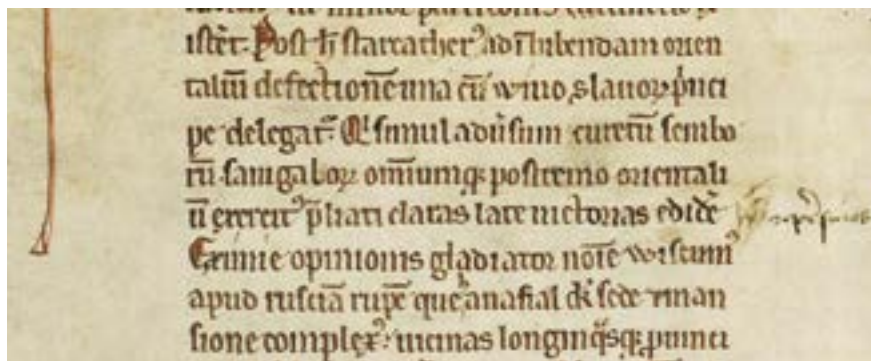 ist̄er. Post h̄ starcather᷒ ad īhibendam orien
taliū defectionē una cū wino slauoꝝ p̄nci
pe delegat᷒. Qi simul adūsum curetū sembo
rū samgaloꝝ om̄iumqꝫ postremo orientali
ū exercit᷒ p̄liati claras late uictorias edidē
Eximie opinionis gladiator noīe wisinn᷒
apud rusciā rupē que anafial dr̄ sede ⁊ man
sione complex᷒ uicinas longinq̄sqꝫ ꝓuinci